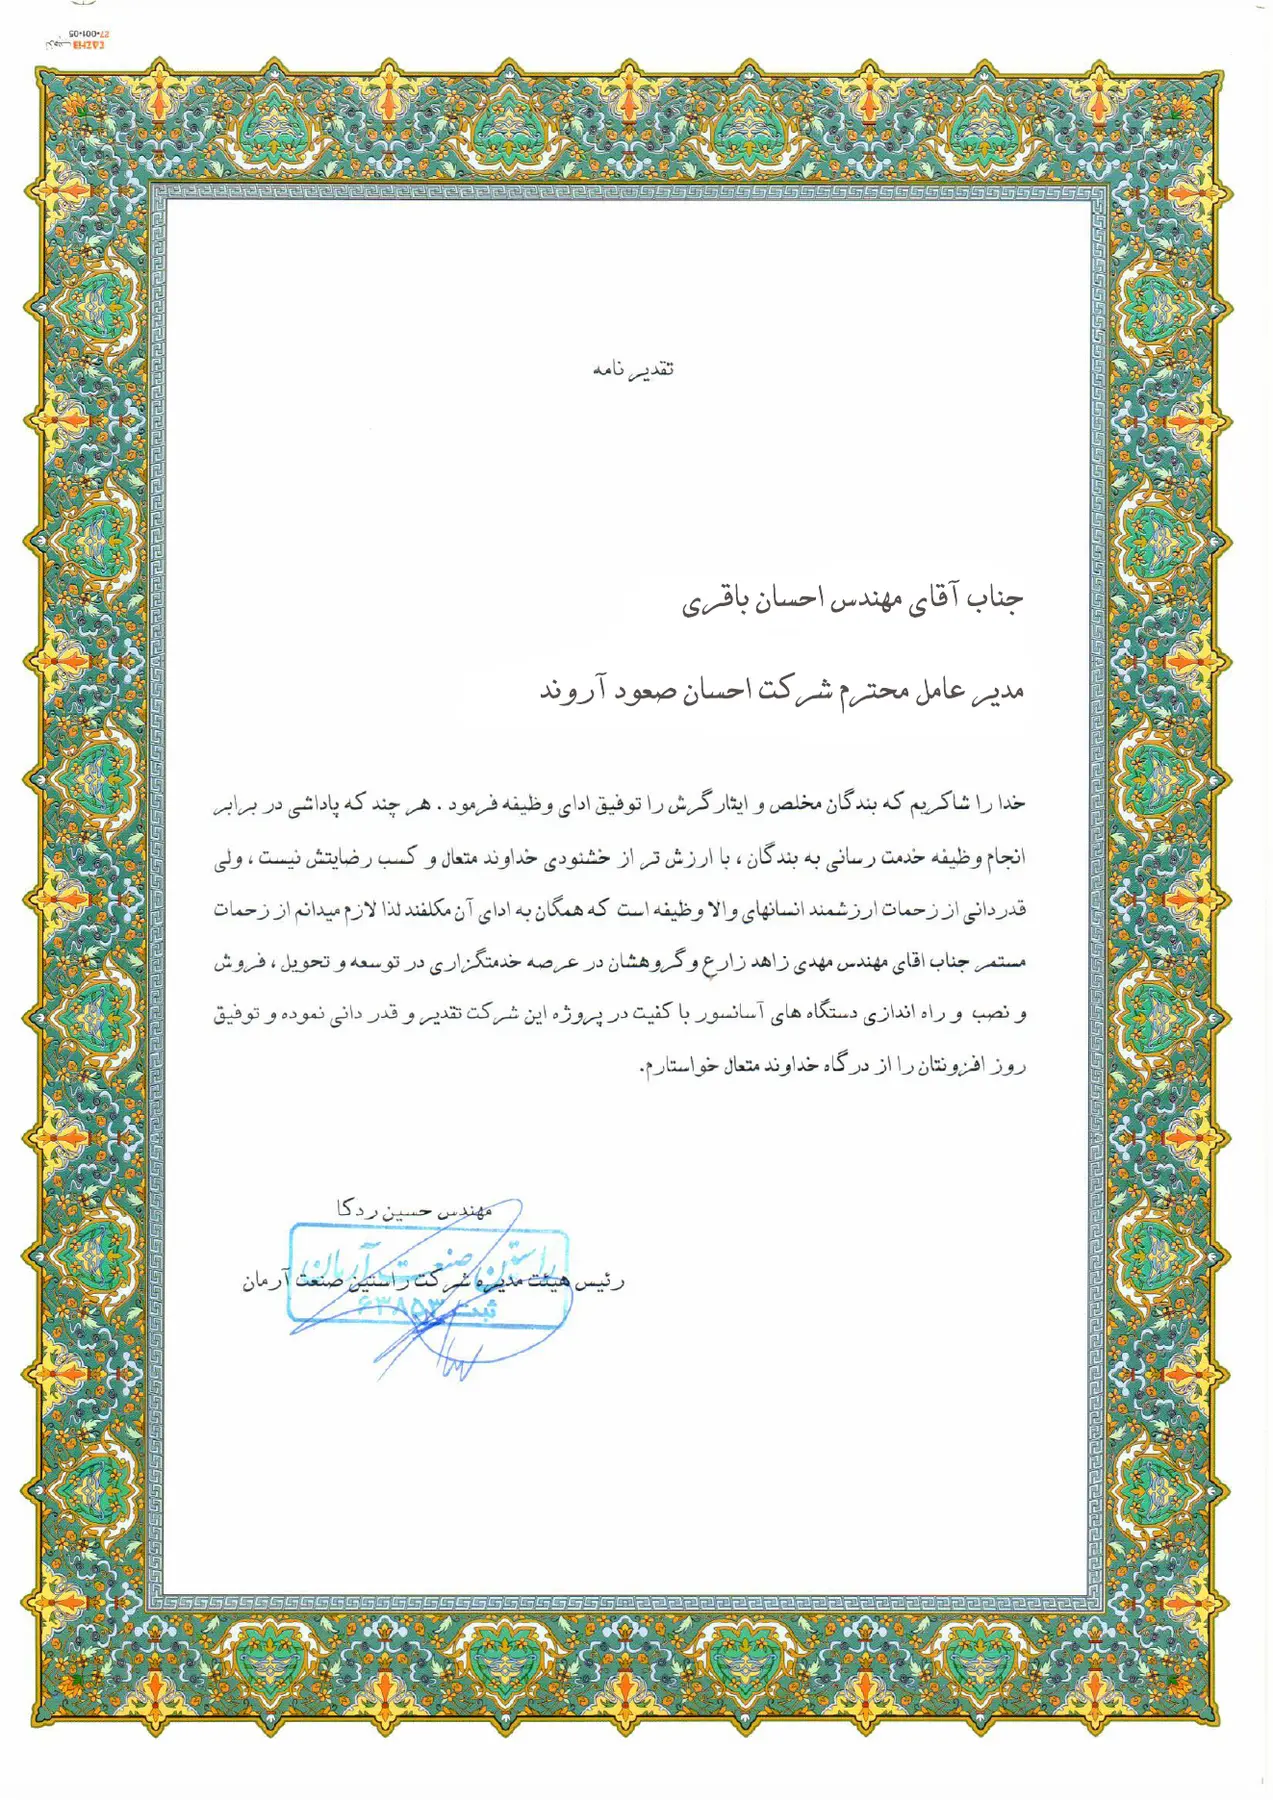 27-001-05
تقدیر نامه
جناب آقای مهندس احسان باقری
مدیر عامل محترم شرکت احسان صعود آروند
خدا را شاکریم که بندگان مخلص و ایثارگرش را توفیق ادای وظیفه فرمود . هر چند که پاداشی در برابر
انجام وظیفه خدمت رسانی به بندگان ، با ارزش تر از خشنودی خداوند متعال و کسب رضایتش نیست ، ولی
قدردانی از زحمات ارزشمند انسانهای والا وظیفه است که همگان به ادای آن مکلفند لذا لازم میدانم از زحمات
مستمر جناب اقای مهندس مهدی زاهد زارع وگروهشان در عرصه خدمتگزاری در توسعه و تحویل ، فروش
و نصب و راه اندازی دستگاه های آسانسور با کفیت در پروژه این شرکت تقدیر و قدر دانی نموده و توفیق
روز افزونتان را از درگاه خداوند متعال خواستارم.
مهندس حسین ردکا
راستین صنعت آرمان
رئیس هیئت مدیره شرکت راستین صنعت آرمان
ثبت ۶۳۸۵۳